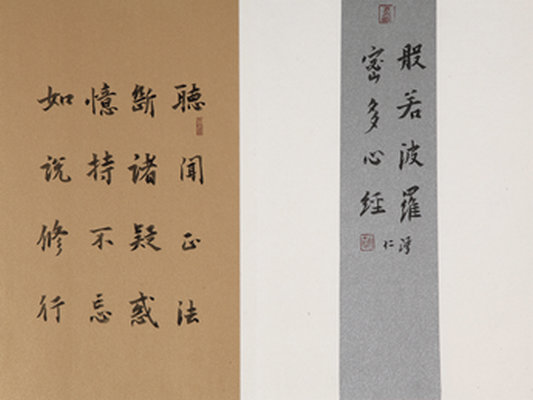 般若波羅
密多心經
仁
聽聞正法
斷諸疑惑
憶持不忘
如說修行